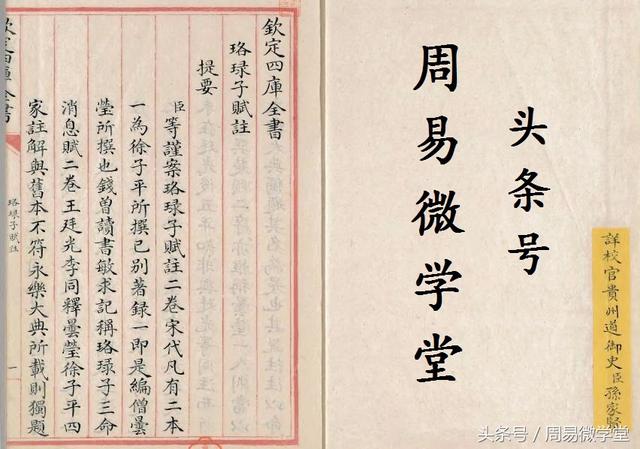 欽定四庫全書
珞琭子賦註
提要
臣等謹案珞琭子賦註二卷宋代凡有二本
一為徐子平所撰已别著錄一即是編僧曇
瑩所撰也錢曽讀書敏求記稱珞琭子三命
消息賦二卷王廷光李同釋曇瑩徐子平四
家註解與舊本不符永樂大典所載則獨題
欽定四庫全書
珞琭子賦註
一
头条号
周易微学堂
詳校官貴州道御史臣孫家賢
头条号 / 周易微学堂